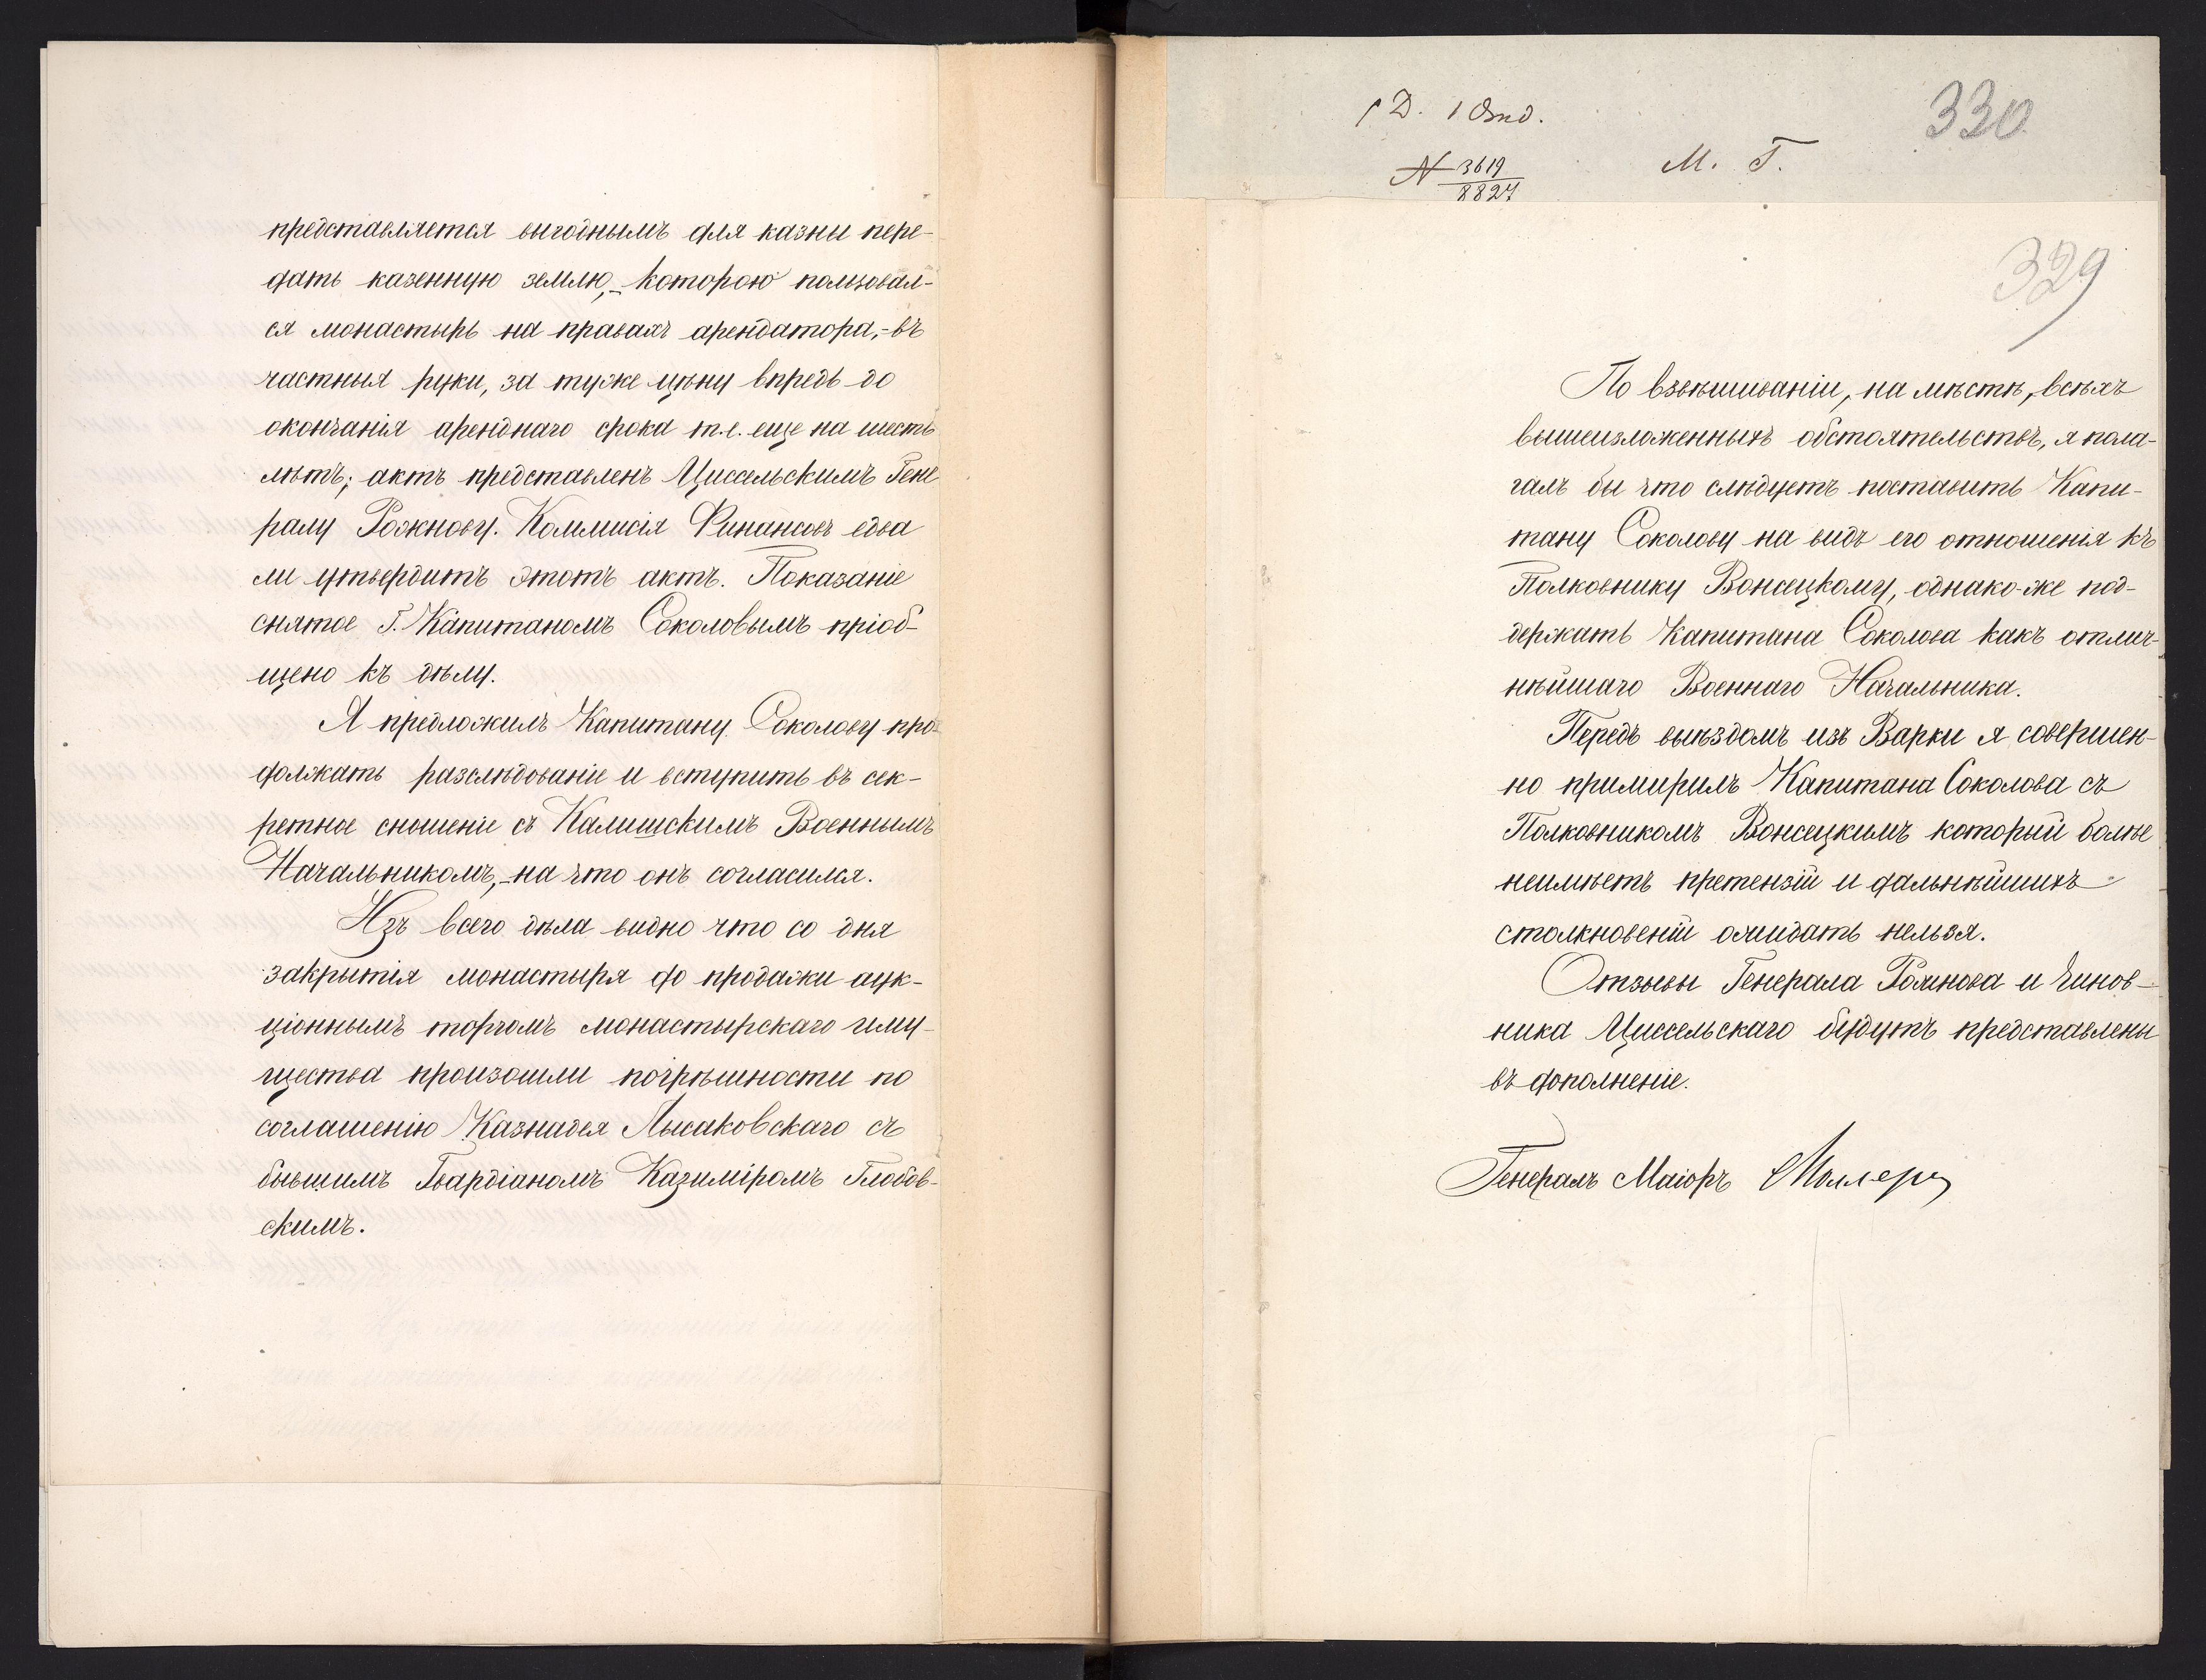 представляется выгоднымъ для казны пере-
дать казенную землю,-которою пользовал-
ся монастырь на правахъ арендатора,-въ
частныя руки, за туже цѣну впредь до
окончанія аренднаго срока т.е. еще на шесть
лѣтъ; актъ представленъ Циссельскимъ Гене
ралу Рожнову. Коммисія Финансовъ едва
ли утвердитъ этотъ актъ. Показаніе
снятое Г. Капитаномъ Соколовымъ пріоб-
щено къ дѣлу.
Я предложилъ Капитану Соколову про-
должать разслѣдованіе и вступить въ сек-
ретное сношеніе съ Калишскимъ Военнымъ
Начальникомъ,-на что онъ согласился.
Изъ всего дѣла видно что со дня
закрытія монастыря до продажи аук-
ціоннымъ торгомъ монастырскаго иму-
щества произошли погрѣшности по
соглашенію Казнадея Лысаковскаго съ
бывшимъ Гвардіаномъ Казиміромъ Глобов-
скимъ.
1 Д. 1 Отд.
№ 3619
8827
М. Г.
330
329
По взвѣшиваніи, на мѣстѣ, всѣхъ
вышеизложенныхъ обстоятельствъ, я пола-
галъ бы что слѣдуетъ поставить Капи-
тану Соколову на видъ его отношенія къ
Полковнику Вонсецкому, однако-же под-
держать Капитана Соколова какъ отлич-
нѣйшаго Военнаго Начальника.
Передъ выѣздомъ изъ Варки я совершен-
но примирилъ Капитана Соколова съ
Полковникомъ Вонсецкимъ который болѣе
неимѣетъ претензій и дальнѣйшихъ
столкновеній ожидать нельзя.
Отзывы Генерала Рожнова и Чинов-
ника Циссельскаго будутъ представлены
въ дополненіе.
Генералъ Маіоръ Моллеръ